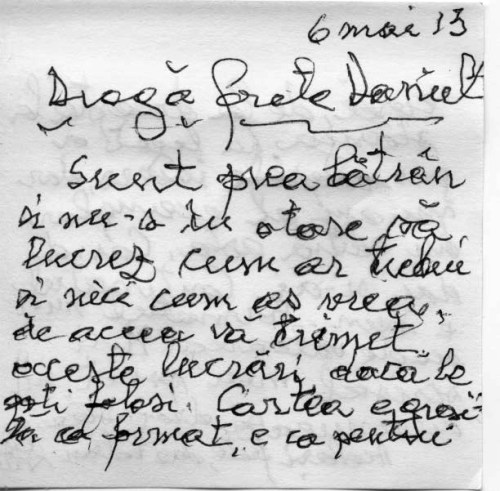 6 mai 13
Dragă frate Daniel
Sunt prea bătrân
si nu-s în stare să
lucrez cum ar trebui
si nici cum as vrea,
de aceea vă trimet
aceste lucrări dacă le
poti folosi. Cartea e gresi-
ta ca format, e ca pentru